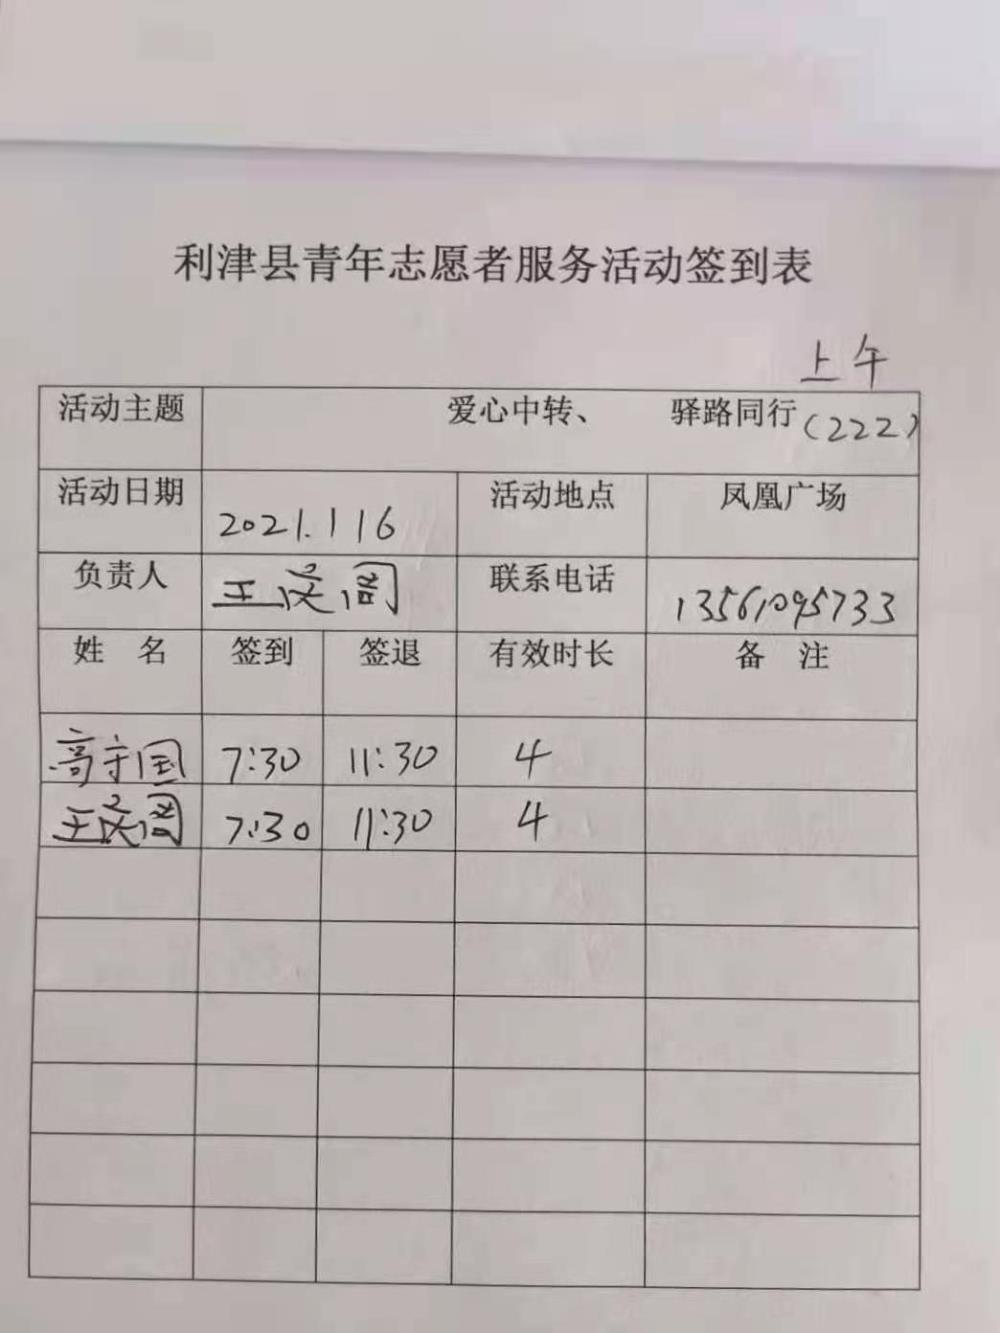 利津县青年志愿者服务活动签到表
上午
活动主题 爱心中转、 驿路同行 (222)
活动日期 2021.1 16 活动地点 凤凰广场
负责人 王 联系电话 13561095733
姓 名 签到 签退 有效时长 备 注
高守国 7:30 11:30 4
王 7:30 11:30 4